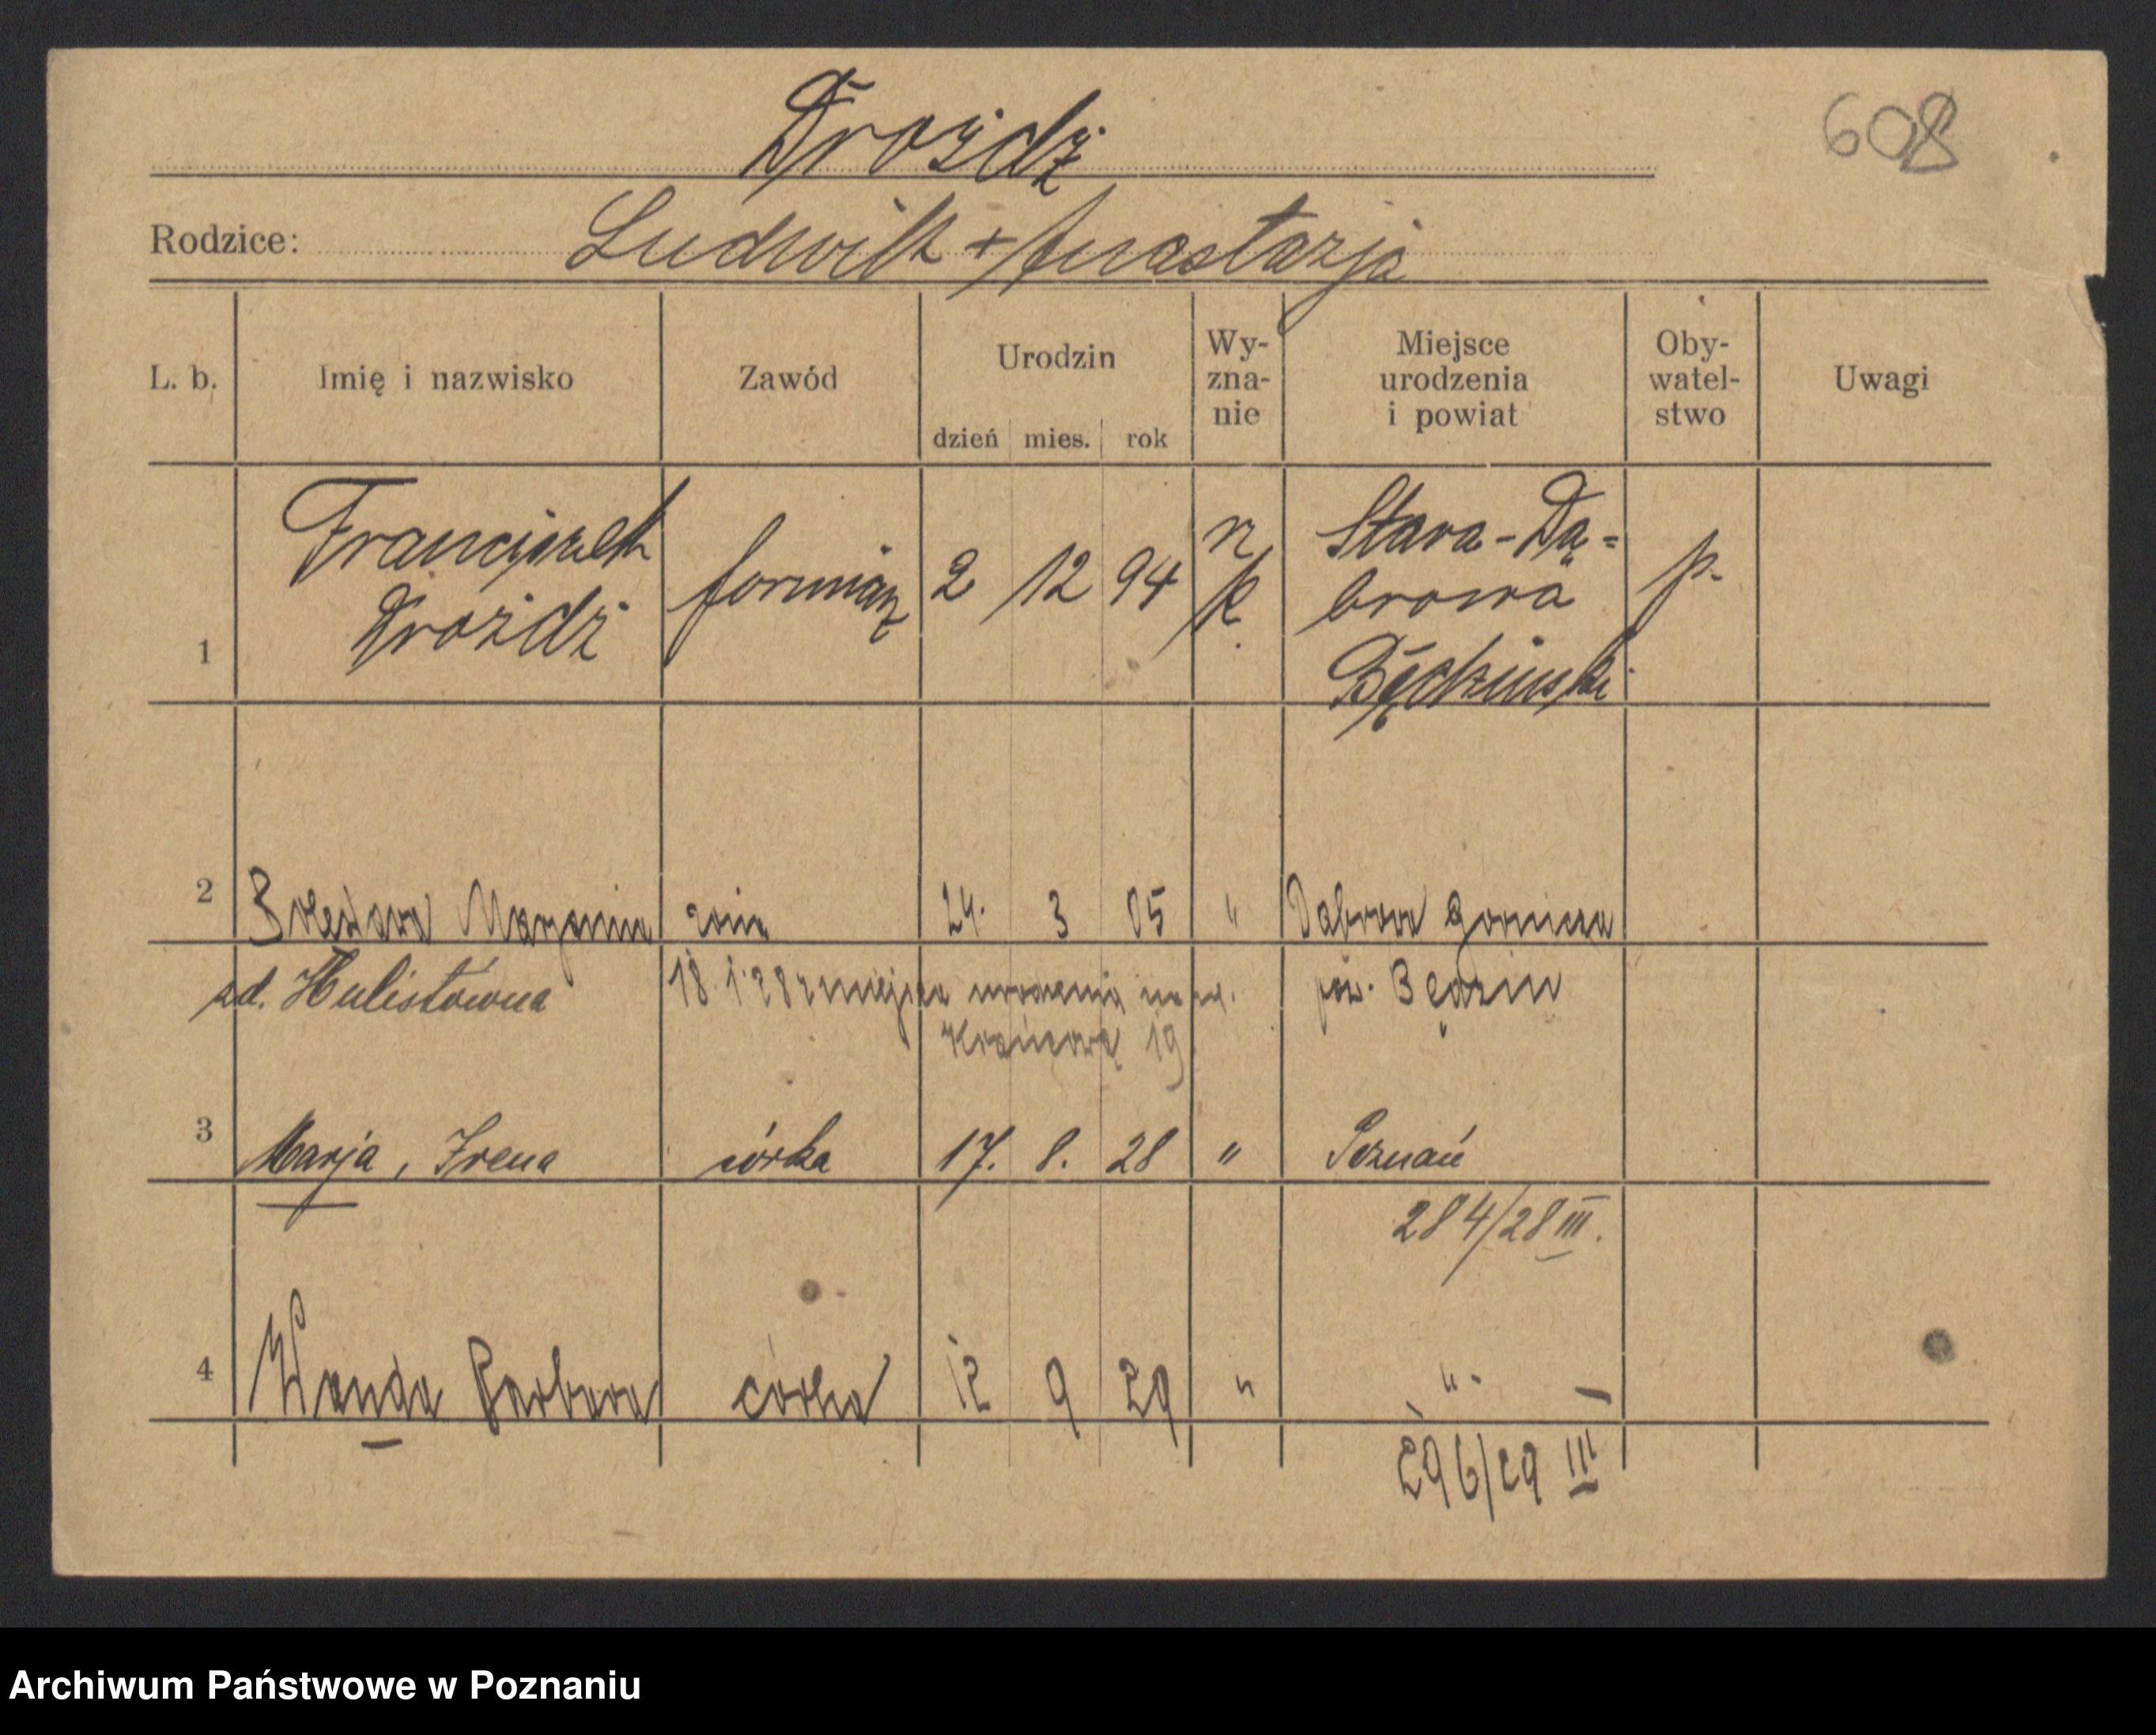 608
Drożdż
Rodzice: Ludwik + Anastazja
L. b. Imię i nazwisko Zawód Urodzin dzień mies. rok Wy-zna-nie Miejsce urodzenia i powiat Oby-watel-stwo Uwagi
1 Franciszek Drożdż formiarz 2 12 94 rz k. Stara-Dą= browa Będziński p.
2 Bolesława Marjanna żona 24. 3 05 " Dąbrowa Gornicza
zd. Hulistówna 18.1.28 z miejsca urodzenia na pow. Będzin
19
3 Marja, Irena córka 17. 8. 28 " Poznań
284/28 III.
4 Wanda Barbara córka 12 9 29 " "
296/29 III
Archiwum Państwowe w Poznaniu